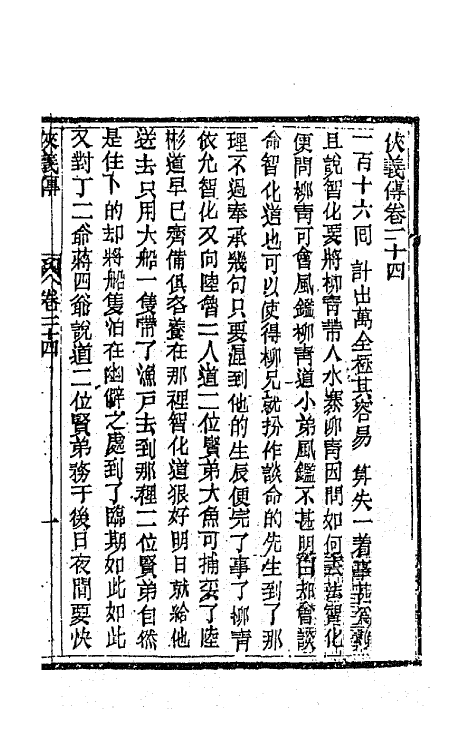 俠義傳卷二十四
一百十六回　計出萬全極其容易　算失一着事甚為難
且說智化要將柳青帶入水寨柳青因問如何設法智化
便問柳青可會風鑑柳青道小弟風鑑不甚明白却會談
命智化道也可以使得柳兄就扮作談命的先生到了那
理不過奉承幾句只要混到他的生辰便完了事了柳青
依允智化又向陸魯二人道二位賢弟大魚可捕妥了陸
彬道早已齊備俱各養在那裡智化道狠好明日就給他
送去只用大船一隻帶了漁戶去到那裡二位賢弟自然
是住下的却將船隻泊在幽僻之處到了臨期如此如此
又對丁二爺蔣四爺說道二位賢弟務于後日夜間要快
俠義傳　卷二十四　一